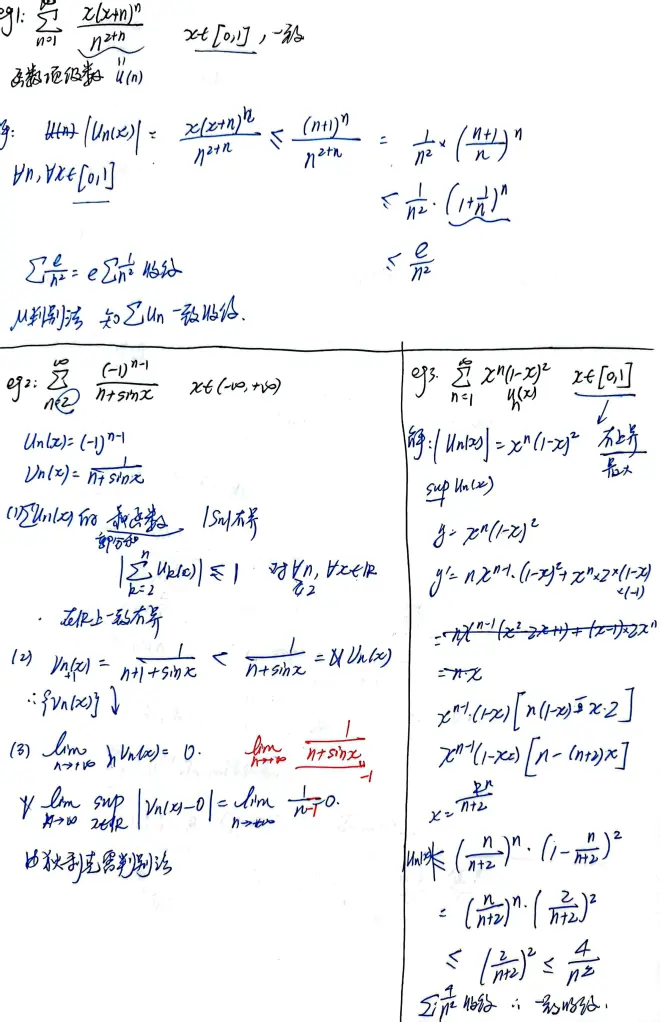 eg1: ∑_{n=1}^{∞} x(x+n)^n / n^{2+n}  x∈[0,1], 一致
函数项级数 u(n)
解: |Un(x)| = x(x+n)^n / n^{2+n} ≤ (n+1)^n / n^{2+n} = 1/n² × ((n+1)/n)^n
∀n, ∀x∈[0,1]
≤ 1/n² · (1+1/n)^n
≤ e/n²
∑ e/n² = e∑ 1/n² 收敛
M判别法 知∑Un 一致收敛.
eg2: ∑_{n=2}^{∞} (-1)^{n-1} / (n+sinx)  x∈(-∞,+∞)
Un(x) = (-1)^{n-1}
Vn(x) = 1/(n+sinx)
(1) ∑Un(x) 的 和函数 |Sn|有界
部分和
|∑_{k=2}^{n} Uk(x)| ≤ 1 对∀n, ∀x∈R
≥2
· 在R上一致有界
(2) V_{n+1}(x) = 1/(n+1+sinx) < 1/(n+sinx) = Vn(x)
∴{Vn(x)}↓
(3) lim_{n→+∞} Vn(x) = 0. lim_{n→+∞} 1/(n+sinx)
-1
lim_{n→∞} sup_{x∈R} |Vn(x)-0| = lim_{n→+∞} 1/(n-1) = 0.
由狄利克雷判别法
eg3. ∑_{n=1}^{∞} x^n(1-x)²  x∈[0,1]
un(x)
解: |Un(x)| = x^n(1-x)² 有上界
最大
sup Un(x)
y = x^n(1-x)²
y' = nx^{n-1}·(1-x)² + x^n×2×(1-x)
×(-1)
= nx^{n-1}(x²-2x+1) + (x-1)×2x^n
= nx
x^{n-1}·(1-x)[n(1-x) - x·2]
x^{n-1}(1-x)[n-(n+2)x]
x = n/(n+2)
Un(x) ≤ (n/(n+2))^n · (1 - n/(n+2))²
= (n/(n+2))^n · (2/(n+2))²
≤ (2/(n+2))² ≤ 4/n²
∑ 4/n² 收敛 ∴ 一致收敛.